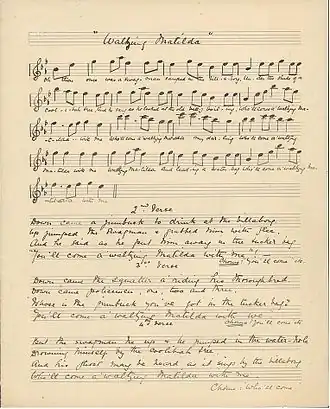 "Waltzing Matilda"
Oh there once was a swag-man camped in the billa-bong, Un-der the shade of a
Cool-i-bah tree, And he sang as he looked at the old billy boil-ing, Who'll come a waltzing Ma-
-til-da with me Who'll come a waltzing Matilda my dar-ling Who'll come a waltzing
Ma-tilda with me Waltzing Matilda and leading a water bag Who'll come a waltzing Ma-
-tilda with me
2nd Verse
Down came a jumbuck to drink at the billabong
Up jumped the swagman & grabbed him with glee,
And he said as he put him away in the tucker bag
You'll come a waltzing Matilda with me
Chorus You'll come etc
3rd Verse
Down came the squatter a riding his thoroughbred
Down came policemen one, two and three,
Whose is the jumbuck you've got in the tucker bag?
You'll come a waltzing Matilda with we
Chorus You'll come etc
4th Verse
But the swagman he up & he jumped in the water-hole
Drowning himself by the coolibah tree
And his ghost may be heard as it sings by the billabong
Who'll come a waltzing Matilda with me
Chorus: Who'll come